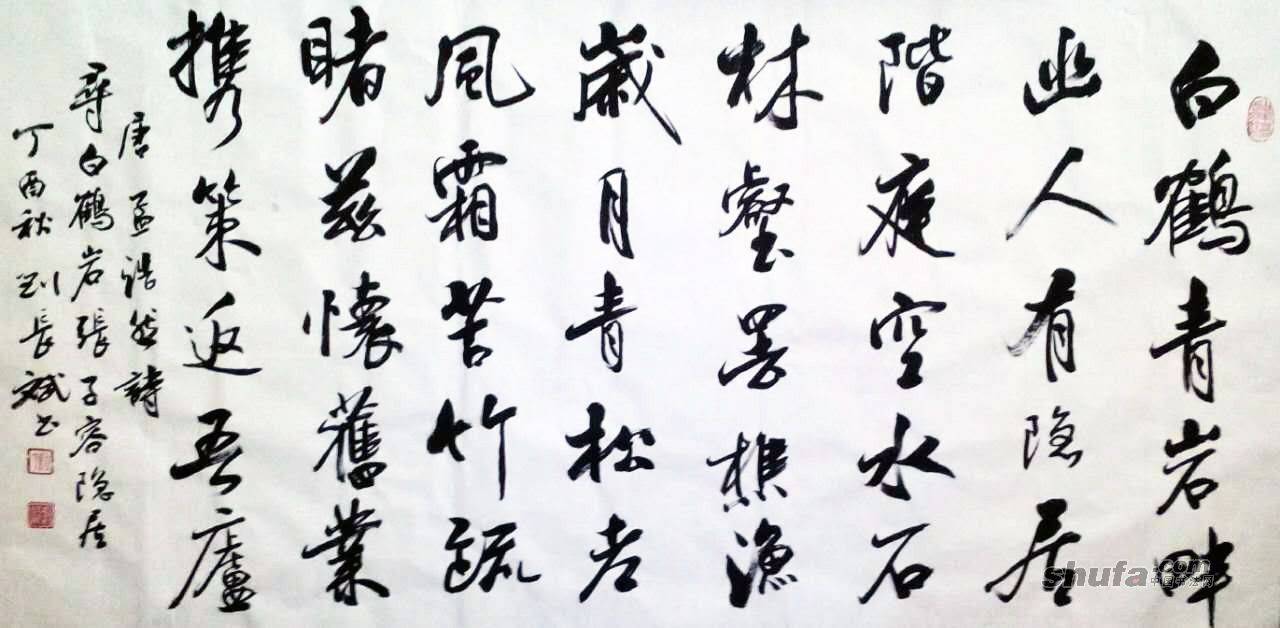 白鶴青岩畔
幽人有隐居
階庭空水石
林壑罢樵漁
歲月青松老
風霜苦竹疏
睹兹懷舊業
携策返吾廬
唐孟浩然詩
尋白鶴岩張子容隐居
丁酉秋刘長斌书
shufa.com
中国书法网